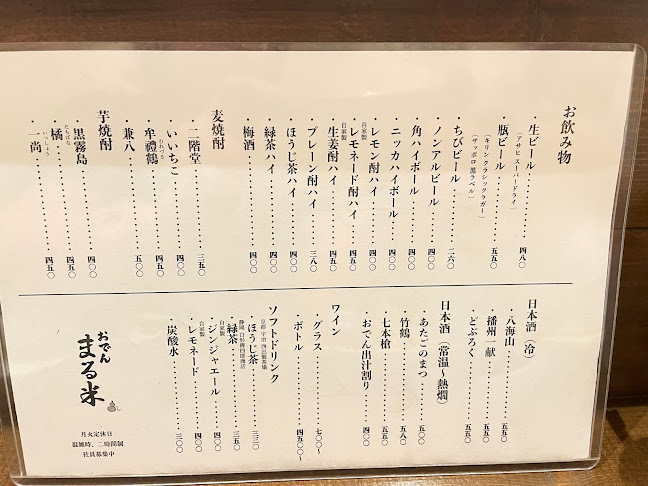 お飲み物
・生ビール・・・・・・・・四八〇
（アサヒ スーパードライ）
・瓶ビール・・・・・・・・五五〇
（キリン クラシックラガー）
（サッポロ 黒ラベル）
・ちびビール・・・・・・・・二六〇
・ノンアルビール・・・・四〇〇
・角ハイボール・・・・・・四〇〇
・ニッカハイボール・・・・四〇〇
自家製
・レモン酎ハイ・・・・・・四〇〇
自家製
・レモネード酎ハイ・・・・四五〇
自家製
・生姜酎ハイ・・・・・・四五〇
・プレーン酎ハイ・・・・三八〇
・ほうじ茶ハイ・・・・・・四〇〇
・緑茶ハイ・・・・・・・・四〇〇
・梅酒・・・・・・・・・・四〇〇
麦焼酎
・二階堂・・・・・・・・三五〇
・いいちこ・・・・・・・・四〇〇
・牟禮鶴・・・・・・・・四五〇
むれづる
・兼八・・・・・・・・・・五〇〇
芋焼酎
・黒霧島・・・・・・・・四〇〇
・橘・・・・・・・・・・四五〇
たちばな
・一尚・・・・・・・・・・四五〇
いっしょう
日本酒（冷）
・八海山・・・・・・・・五五〇
・播州一献・・・・・・五五〇
・どぶろく・・・・・・五五〇
日本酒（常温〜熱燗）
・あたごのまつ・・・・五〇〇
・竹鶴・・・・・・・・五八〇
・七本槍・・・・・・・・五五〇
・おでん出汁割り・・・・四〇〇
ワイン
・グラス・・・・・・七〇〇〜
・ボトル・・・・・・四五〇〇〜
ソフトドリンク
京都 宇治
・ほうじ茶・・・・・・三三〇
静岡
・緑茶・・・・・・・・三五〇
自家製
・ジンジャエール・・・・四〇〇
自家製
・レモネード・・・・・・四〇〇
・炭酸水・・・・・・・・三〇〇
おでん
まる米
月火定休日
混雑時、二時間制
社員募集中